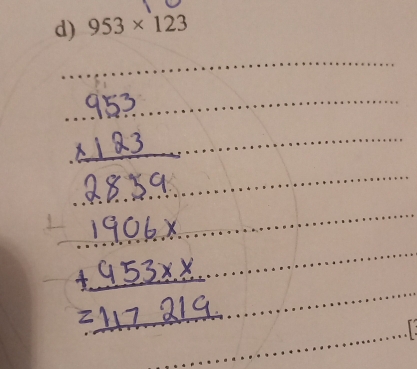 d) 953 × 123
953
×123
2859
1906×
+953××
=117 219